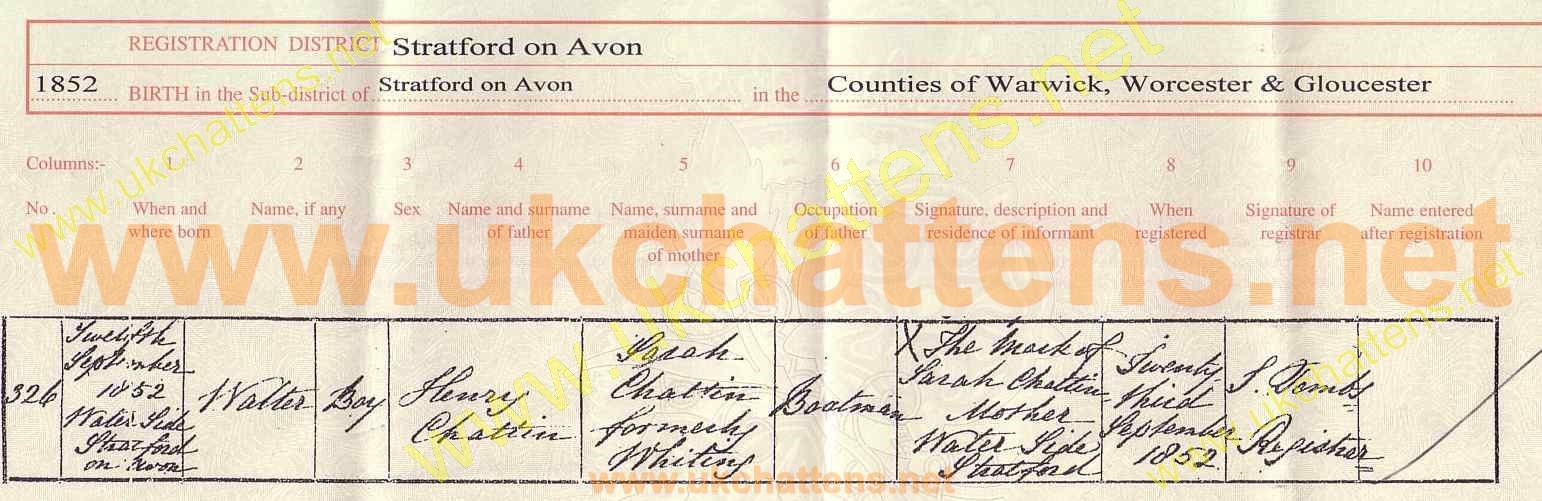 REGISTRATION DISTRICT Stratford on Avon
1852 BIRTH in the Sub-district of Stratford on Avon in the Counties of Warwick, Worcester & Gloucester
Columns:- 1 2 3 4 5 6 7 8 9 10
No. When and where born Name, if any Sex Name and surname of father Name, surname and maiden surname of mother Occupation of father Signature, description and residence of informant When registered Signature of registrar Name entered after registration
www.ukchattens.net
www.ukchattens.net
www.ukchattens.net
www.ukchattens.net
www.ukchattens.net
326
Twelfth
September
1852
Water Side
Stratford
on avon
Walter
Boy
Henry
Chattin
Sarah
Chattin
formerly
Whiting
Boatman
X The Mark of
Sarah Chattin
Mother
Water Side
Stratford
Twenty
third
September
1852
Tombs
Registrar
www.ukchattens.net